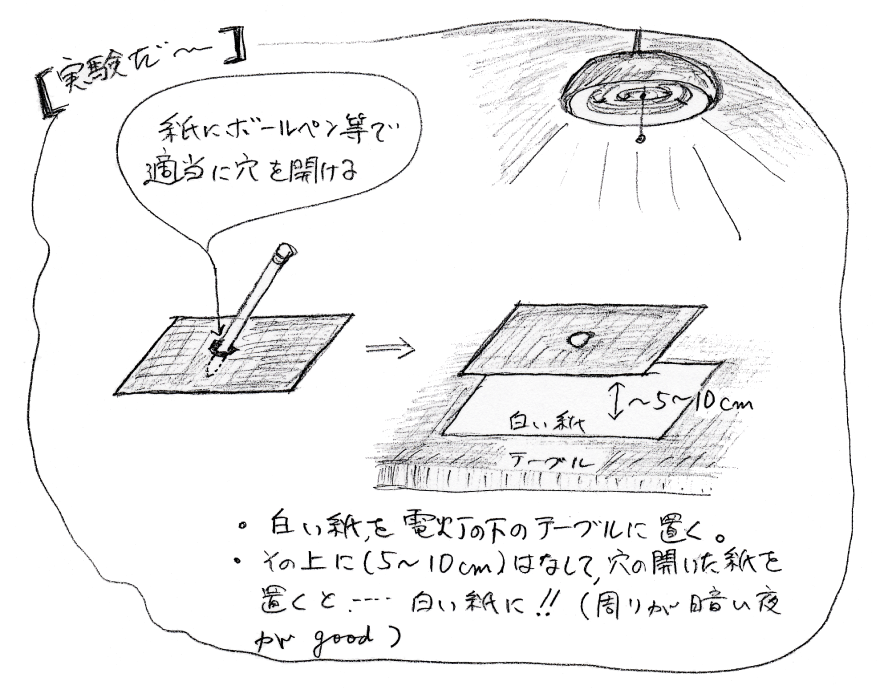 【実験だ～】
紙にボールペン等で
適当に穴を開ける
～5～10cm
白い紙
テーブル
・白い紙を電灯の下のテーブルに置く。
・その上に(5～10cm)はなして,穴の開いた紙を
置くと…… 白い紙に!!(周りが暗い夜
が good)